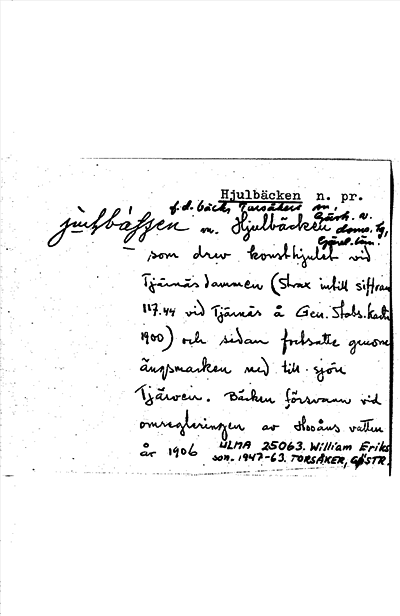 Hjulbäcken n. pr.
f.d. bäck, Torsåkers sn.
Gästr. v.
juḷbáʃʃen m. Hjulbäcken doms. tg,
Gävel. län.
som drev konsthjulet vid
Tjärnäsdammen (strax intill siffran
117.44 vid Tjärnäs å Gen. Stabs. Karta
1900) och sedan fortsatte genom
ängsmarken ned till sjön
Tjärven. Bäcken försvann vid
omregleringen av Hoåns vatten
år 1906 ULMA 25063. William Eriks
son. 1947-63. TORSÅKER, GÄSTR.